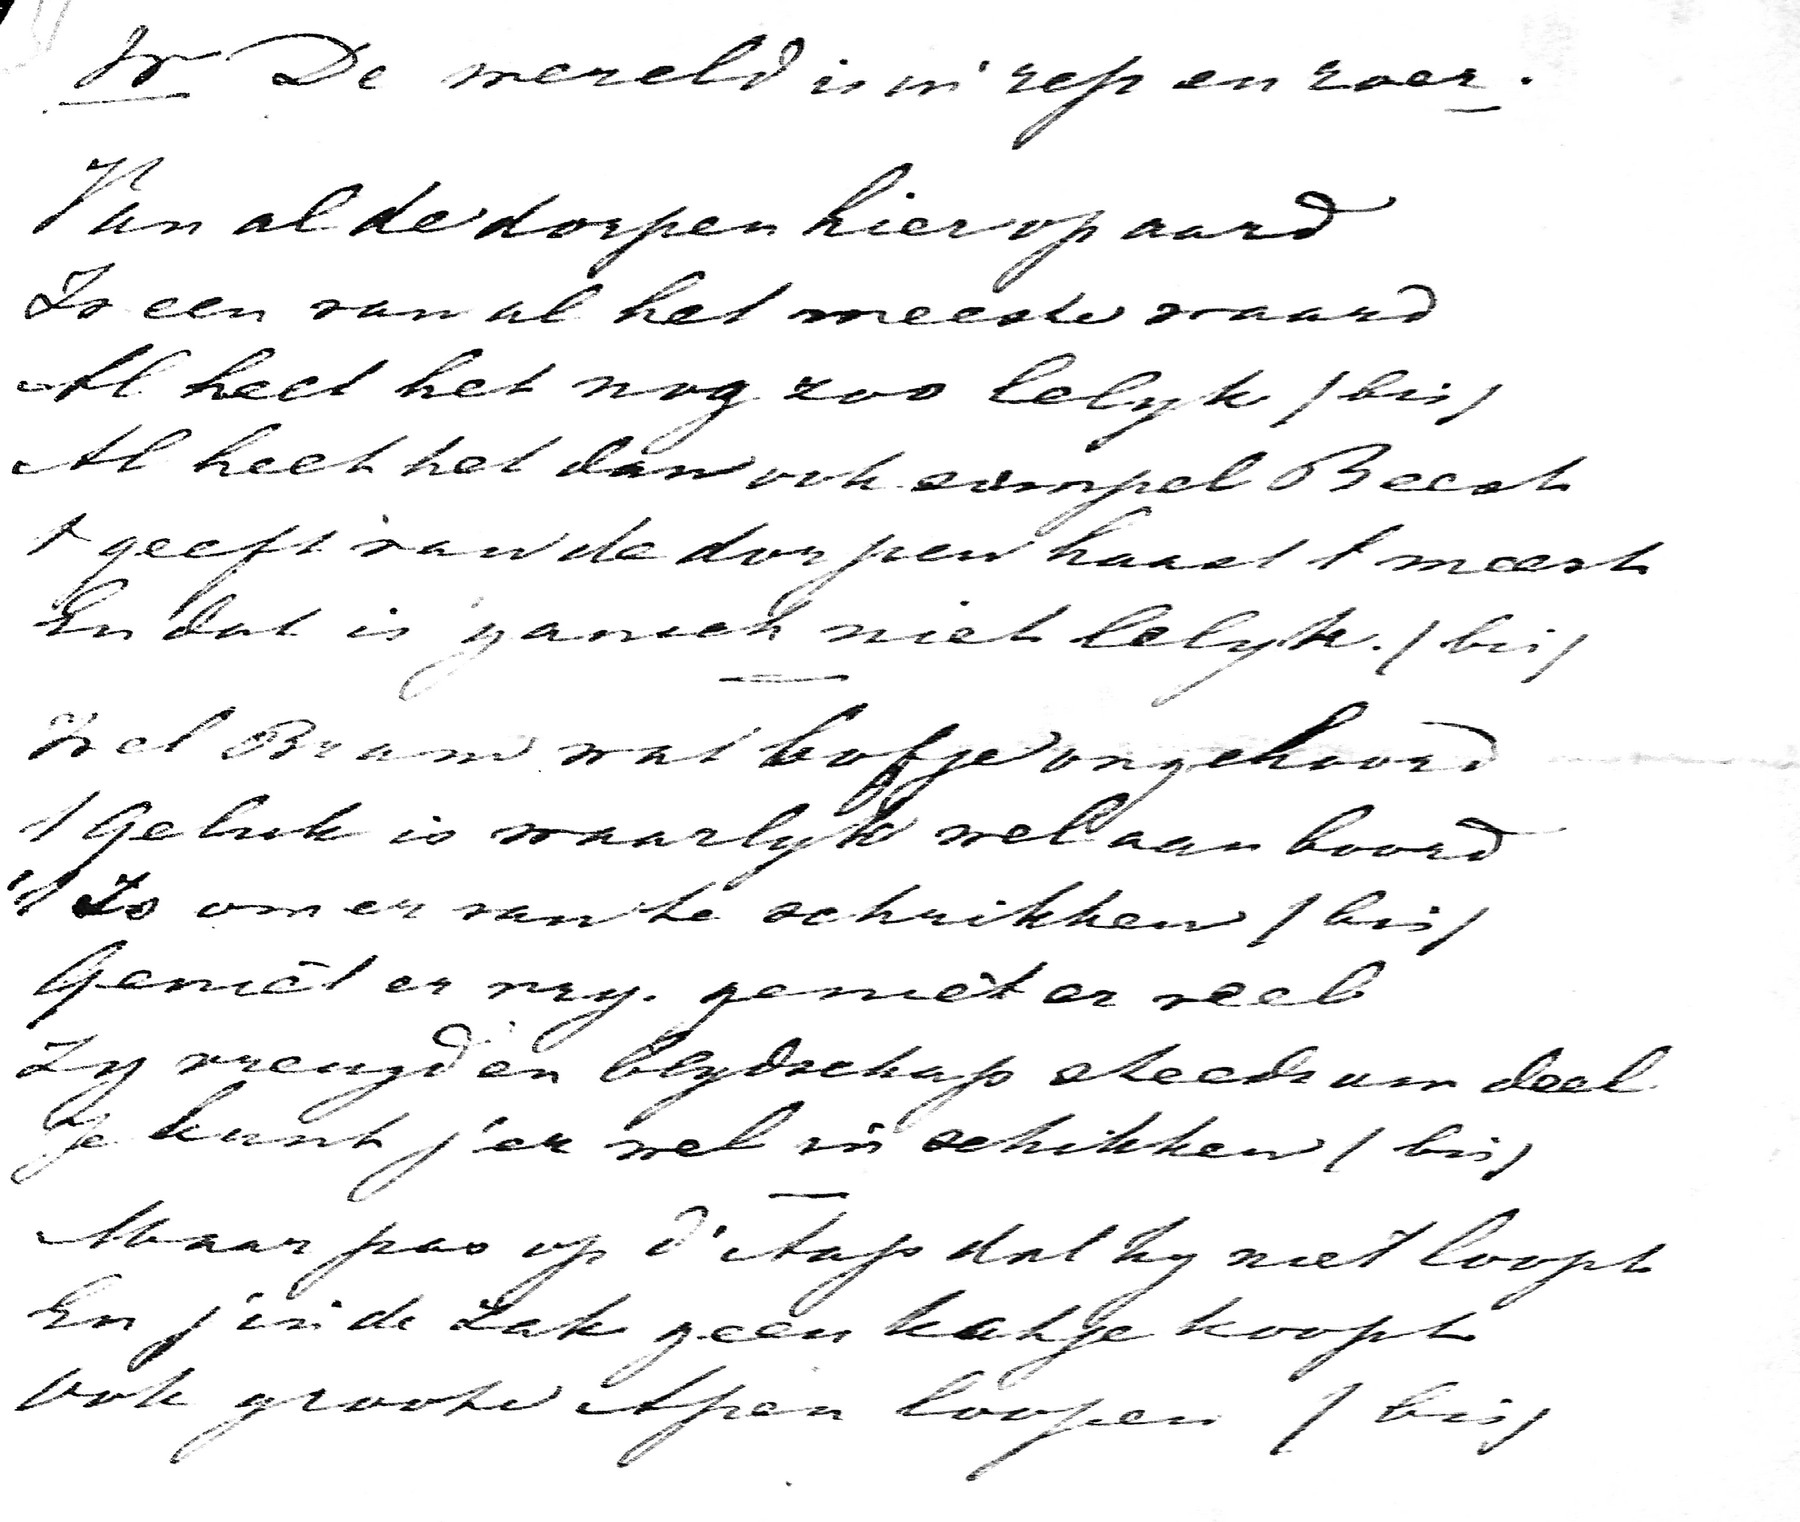 Wr De wereld is in rep en roer.
Van al de dorpen hier op aard
Is een van al het meeste waard
Al heet het nog zoo lelyk / bis /
Al heet het dan ook simpel Beest
t geeft van de dorpen haast t meest
En dat is gansch niet lelyk. / bis /
Wel Bram wat bofje ongehoord
t Geluk is waarlyk wel aan boord
't Is om er van te schrikken / bis /
Geniet er vry. geniet er veel
Zy vreugd en blydschap steeds uw deel
Je kunt j'er wel in schikken / bis /
Maar pas op d' Aap dat hy niet loopt
En j' in de Zak geen katje koopt
Ook groote Apen loopen / bis /